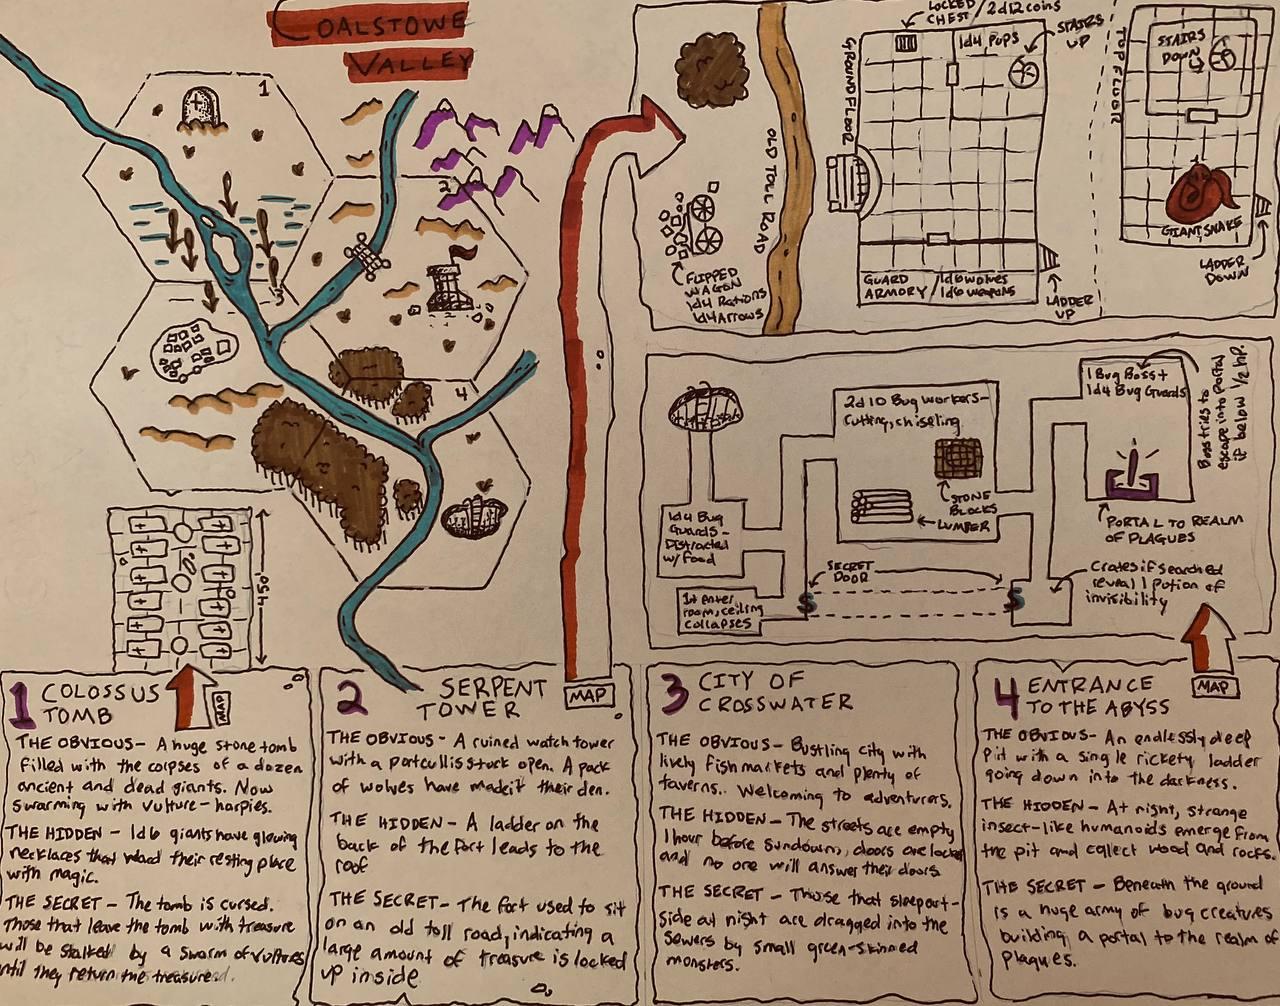 COALSTOWE
VALLEY
1
2
3
4
45'
OLD TOLL ROAD
FLIPPED
WAGON
1d4 Rations
1d4 Arrows
LOCKED
CHEST / 2d12 coins
1d4 PUPS
STAIRS
UP
GROUND FLOOR
GUARD
ARMORY / 1d6 wolves
1d6 weapons
LADDER
UP
TOP FLOOR
STAIRS
DOWN
GIANT SNAKE
LADDER
DOWN
1d4 Bug
Guards -
Distracted
w/ food
1st enter
room, ceiling
collapses
SECRET
DOOR
S
S
2d10 Bug workers-
cutting, chiseling
STONE
BLOCKS
LUMBER
1 Bug Boss +
1d4 Bug Guards
Boss tries to
escape into portal
if below 1/2 hp.
PORTAL TO REALM
OF PLAGUES
Crates if searched
reveal 1 potion of
invisibility
1 COLOSSUS
TOMB
MAP
THE OBVIOUS - A huge stone tomb
filled with the corpses of a dozen
ancient and dead giants. Now
swarming with vulture-harpies.
THE HIDDEN - 1d6 giants have glowing
necklaces that ward their resting place
with magic.
THE SECRET - The tomb is cursed.
Those that leave the tomb with treasure
will be stalked by a swarm of vultures
until they return the treasure.
2 SERPENT
TOWER
MAP
THE OBVIOUS - A ruined watch tower
with a portcullis stuck open. A pack
of wolves have made it their den.
THE HIDDEN - A ladder on the
back of the fort leads to the
roof
THE SECRET - The fort used to sit
on an old toll road, indicating a
large amount of treasure is locked
up inside
3 CITY OF
CROSSWATER
THE OBVIOUS - Bustling city with
lively fish markets and plenty of
taverns.. Welcoming to adventurers.
THE HIDDEN - The streets are empty
1 hour before sundown, doors are locked
and no one will answer their doors
THE SECRET - Those that sleep out-
side at night are dragged into the
sewers by small green-skinned
monsters.
4 ENTRANCE
TO THE ABYSS
MAP
THE OBVIOUS - An endlessly deep
Pit with a single rickety ladder
going down into the darkness.
THE HIDDEN - At night, strange
insect-like humanoids emerge from
the pit and collect wood and rocks.
THE SECRET - Beneath the ground
is a huge army of bug creatures
building a portal to the realm of
plagues.